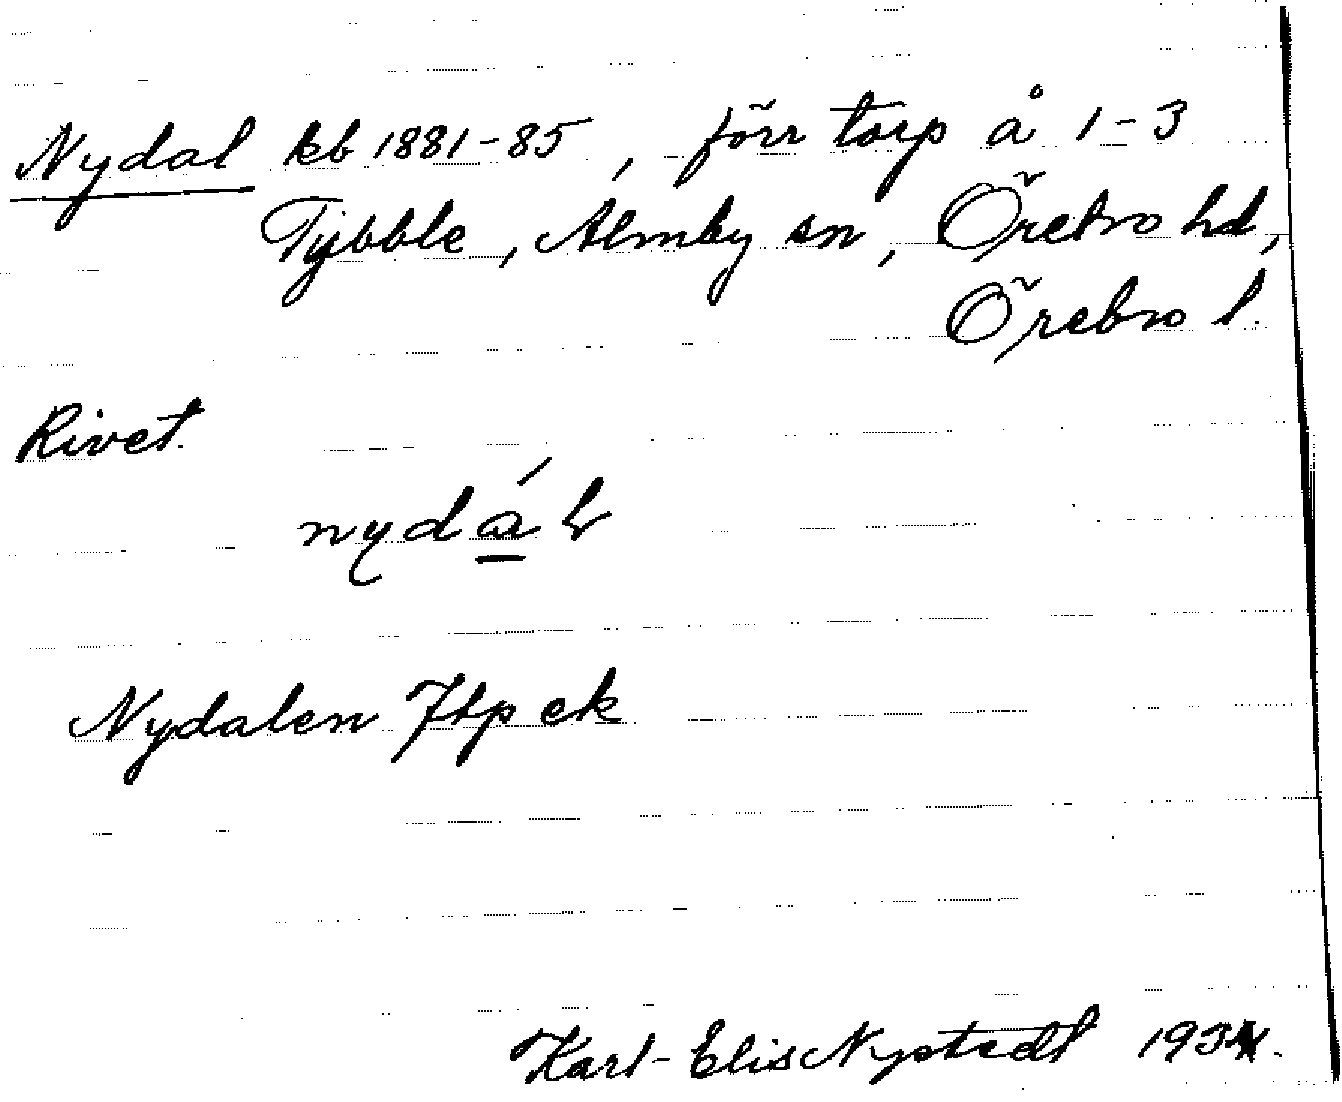 Nydal kb 1881-85, förr torp å 1-3
Tybble, Almby sn, Örebro hd,
Örebro l.
Rivet.
Nydalen Jtp ek
Karl-Elis Nystedt